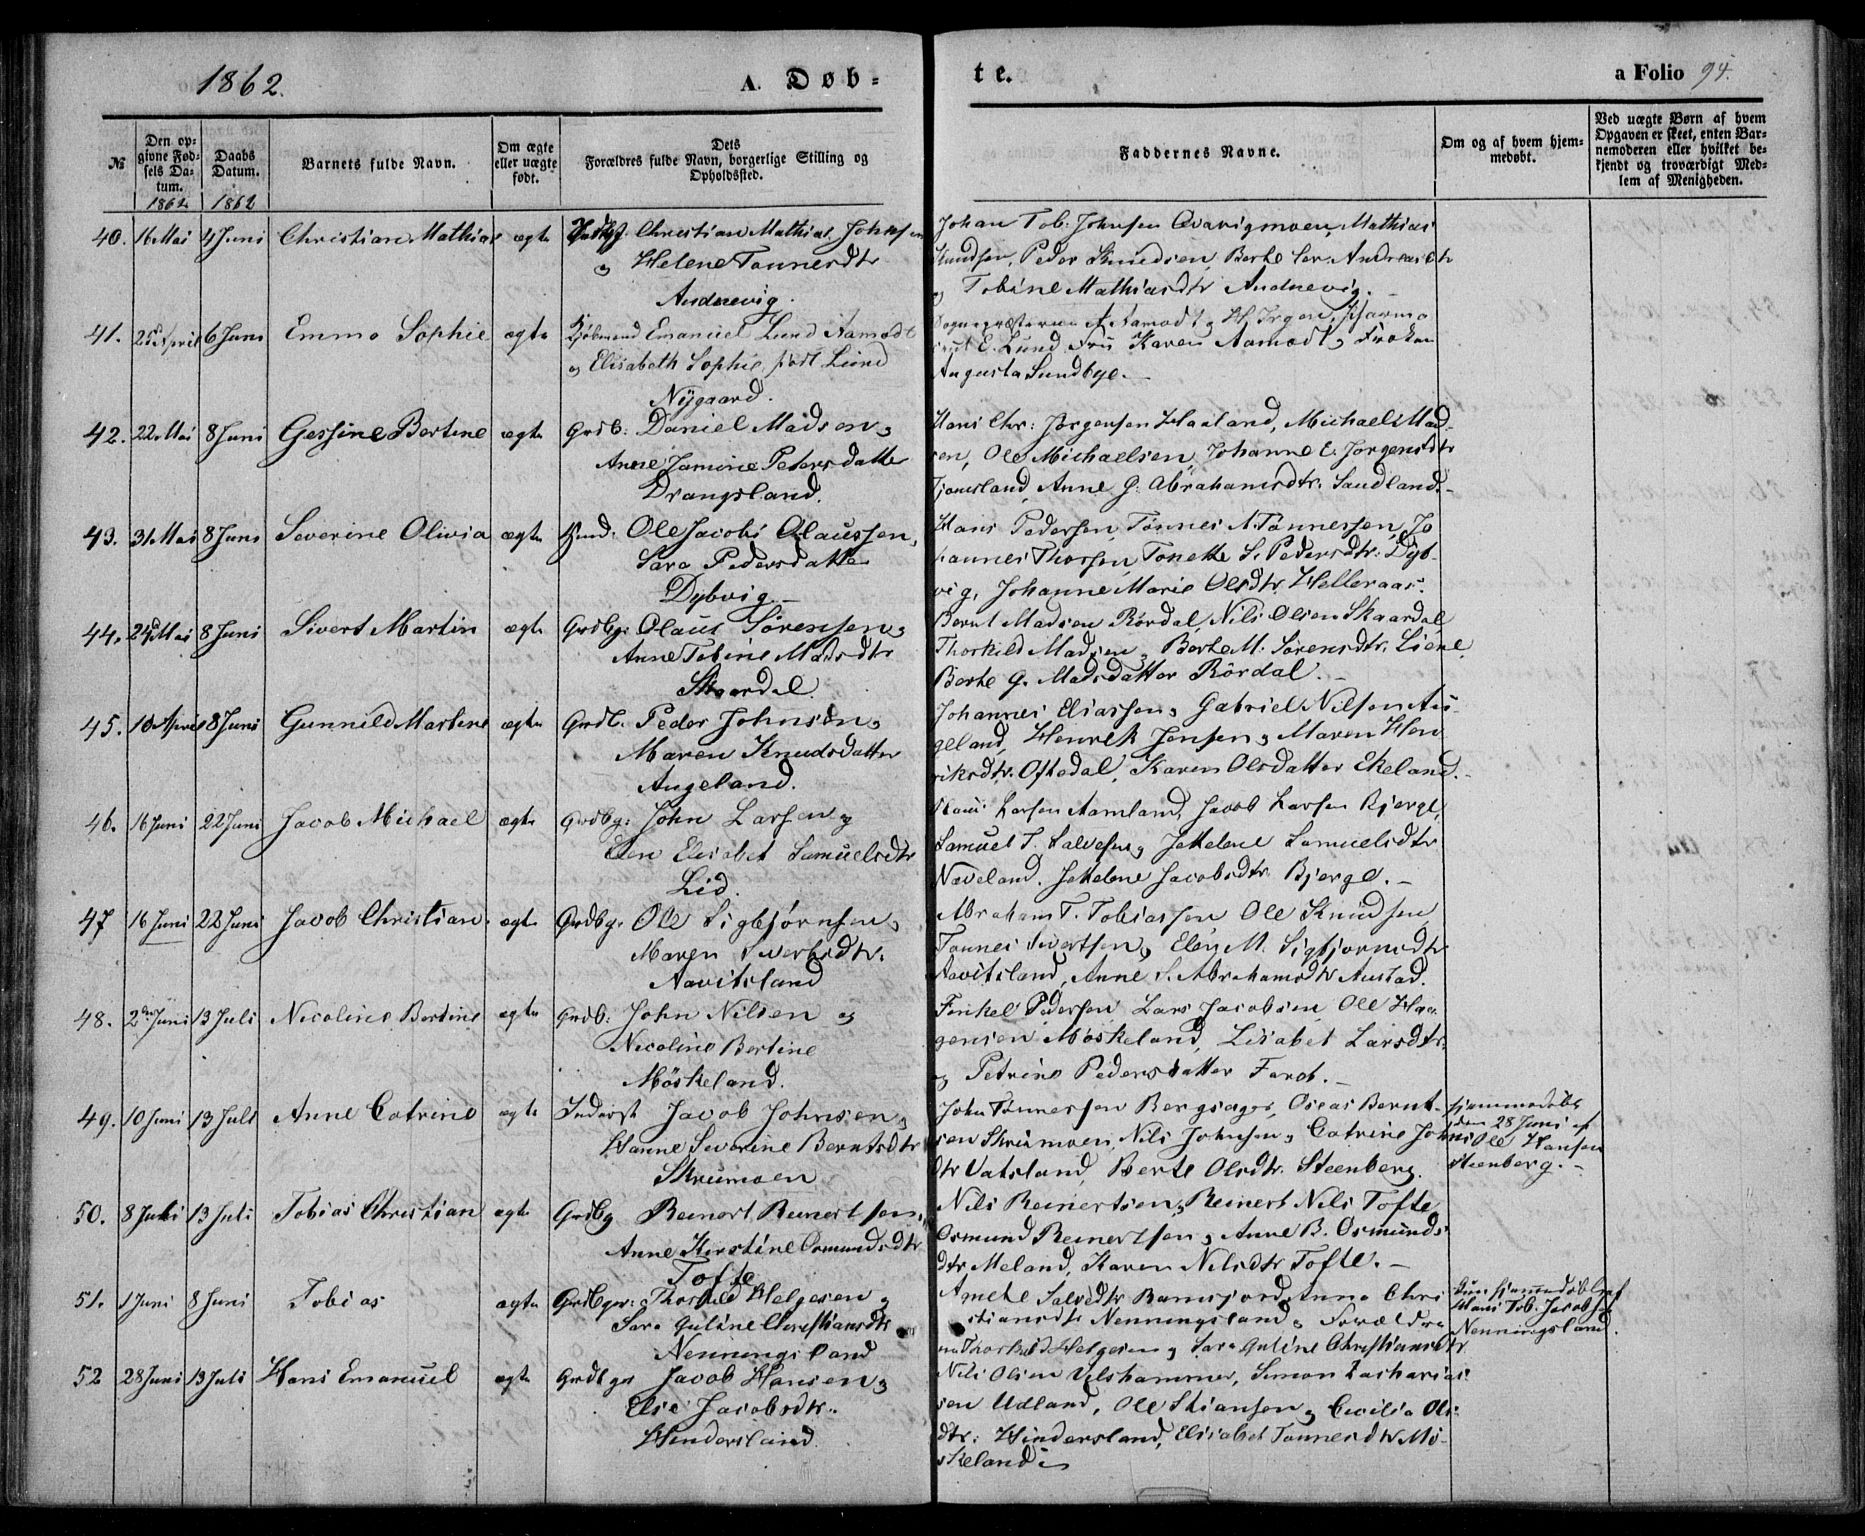 1862.
A. Døb-
te.
a Folio 94.
№
Den op-
givne Fød-
sels Da-
tum.
1862
Daabs
Datum.
1862
Barnets fulde Navn.
Om ægte
eller uægte
født.
Dets
Forældres fulde Navn, borgerlige Stilling og
Opholdssted.
Faddernes Navne.
Om og af hvem hjem-
medøbt.
Ved uægte Børn af hvem
Opgaven er skeet, enten Bar-
nemoderen eller hvilket be-
kjendt og troværdigt Med-
lem af Menigheden.
40. 16 Mai 4 Juni Christian Mathias ægte Christian Mathias Johnsen
og Helene Tønnesdtr
Andnevig.
Johan Tob: Johnsen Qvavigmoen, Mathias
Knudsen, Peder Knudsen, Berte Ser. Andreasdtr
og Tobine Mathiasdtr Andnevig.
41. 25 April 6 Juni Emma Sophie ægte Kjøbmand Emanuel Lund Aamodt
og Elisabeth Sophie født Lund
Nygaard.
Sognepræsterne A Aamodt og H. Irgen, Pharma
ceut E. Lund, Fru Karen Aamodt, Frøken
Augusta Sundbye.
42. 22 Mai 8 Juni Gessine Bertine ægte Grdb: Daniel Madsen og
Anne Jamine Petersdatter
Drangsland.
Hans Chr: Jørgensen Haaland, Michael Mad-
sen, Ole Michaelsen, Johanne E. Jørgensdtr
Tjomsland, Anne G. Abrahamsdtr. Sandland.
43. 31 Mai 8 Juni Severine Olivia ægte Ole Jacobs Olaussen,
Sara Pedersdatter
Dybvig
Hans Pedersen, Tønnes N. Tønnessen, Jo
hannes Thorsen, Tonette S. Pedersdtr. Dyb-
vig, Johanne Marie Olsdtr. Helleraas.
44. 24 Mai 8 Juni Sivert Martin ægte Grdbg: Olaus Sørensen og
Anne Tobine Madsdtr
Skaardal.
Bernt Madsen Rørdal, Nils Olsen Skaardal,
Thorkild Madsen og Berte M. Sørensdtr. Liene,
Berte G. Madsdatter Rørdal.
45. 10 April 8 Juni Gunnild Martine ægte Grdb. Peder Johnsen og
Maren Knudsdatter
Augeland.
Johannes Eliassen og Gabriel Nilsen Au-
geland, Henrik Jensen og Maren Hen
riksdtr. Oftedal, Karen Olsdatter Ekeland.
46. 16 Juni 22 Juni Jacob Michael ægte Grdbg: John Larsen og
Elen Elisabet Samuelsdtr
Lid.
Larsen Aamland, Jacob Larsen Bjerge,
Samuel T. Salvesen og Jakelene Samuelsdtr
Næveland. Jakelene Jacobsdtr. Bjerge.
47 16 Juni 22 Juni Jacob Christian. ægte Grdbg. Ole Sigbjørnsen og
Maren Sivertsdtr.
Aavitsland
Abraham T. Tobiassen Ole Knudsen
Tønnes Sivertsen og Elen M. Sigbjørnsdtr
Aavitsland, Anne S. Abrahamsdtr Austad.
48. 2den Juni 13 Juli Nicoline Bertine ægte Grdb: John Nilsen og
Nicoline Bertine
Møskeland.
Tenkel Pedersen Lars Jacobsen, Ole Haa-
gensen Møskeland, Lisabet Larsdtr.
og Petrine Pedersdatter Farot.
49. 10 Juni 13 Juli Anne Catrine ægte Inderst Jacob Johnsen og
Hanne Severine Berntsdtr
Skruimoen
John Tønnessen Bergsager, Oseas Bernt-
sen Skruimoen, Nils Johnsen og Catrine Johns
dtr Vatsland, Berte Olsdtr. Steenberg.
Hjemmedøbt
den 28 Juni af
Ole Hansen
Steenberg.
50. 8 Juli 13 Juli Tobias Christian ægte Grdbg Reinert Reinertsen og
Anne Kirstine Osmundsdtr
Tofte
Nils Reinertsen, Reinert Nils Tofte
Osmund Reinertsen og Anne B. Osmunds
dtr Meland, Karen Nilsdtr Tofte.
51. 1 Juni 8 Juni Tobias ægte Grdbgr: Thorkild Helgesen og
Sara Guline Christiansdtr
Nenningsland
Amelie Salvesdtr Ramsfjord, Anna Chri
stiansdtr Nenningsland og Foræld-
ne Thorkild Helgesen og Sara Guline Christiansdtr.
Kun hjemmedøbt af
Hans Tob. Jacobsen
Nenningsland.
52 28 Juni 13 Juli Hans Emanuel ægte Grdbgr Jacob Hansen og
Else Jacobsdtr.
Hindersland.
Nils Olsen Ulshammer, Simon Zacharias-
sen Udland, Ole Stiansen og Cecilia Ols-
dtr: Hindersland, Elisabet Tønnesdtr Mø-
skeland.